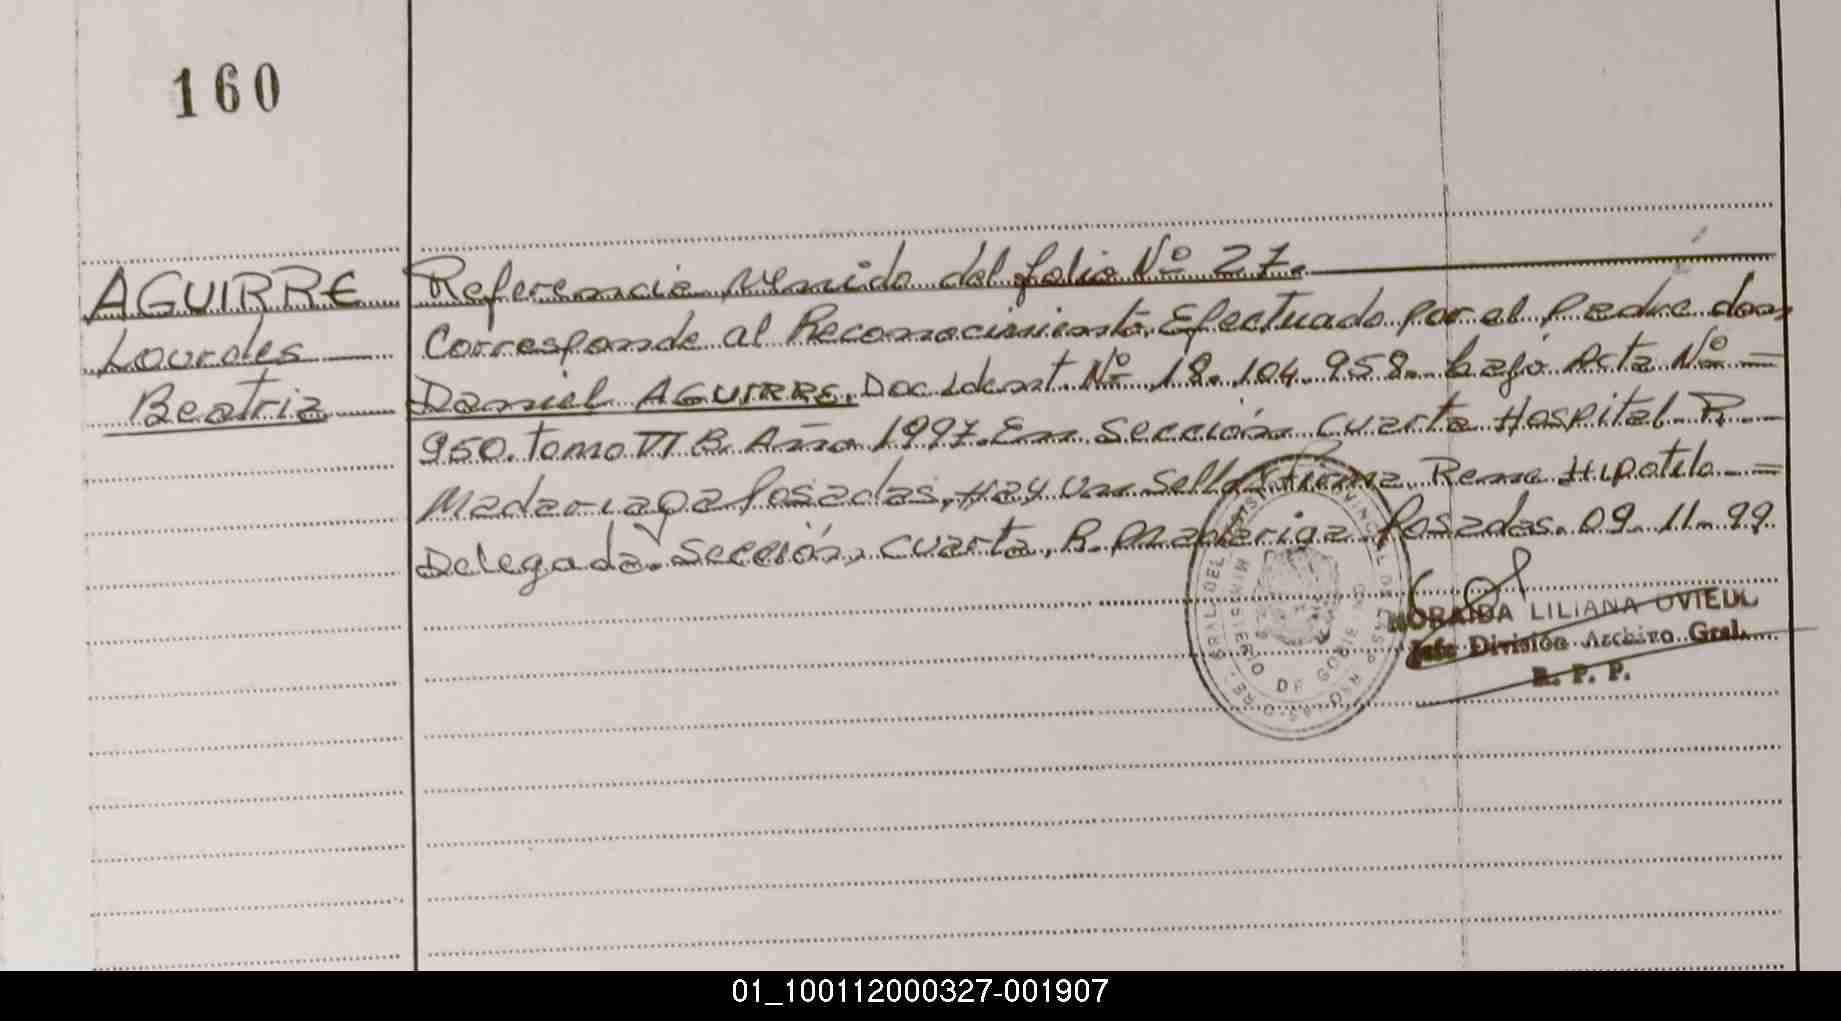 160
AGUIRRE
Lourdes
Beatriz
Referencia venido del folio Nº 27.
Corresponde al Reconocimiento Efectuado por el padre don
Daniel AGUIRRE, Doc Ident. Nº 18.104.958. bajo Acta Nº
950. Tomo VI B. Año 1997. En Sección cuarta Hospital R.
Madariaga Posadas, Hay un Sello Firma Rene Hipolito
Delegado Sección, cuarta, R. Madariaga Posadas. 09.11.99
MINISTERIO DE GOBIERNO
NORAIDA LILIANA OVIEDO
Jefe División Archivo Gral.
R. P. P.
01_100112000327-001907